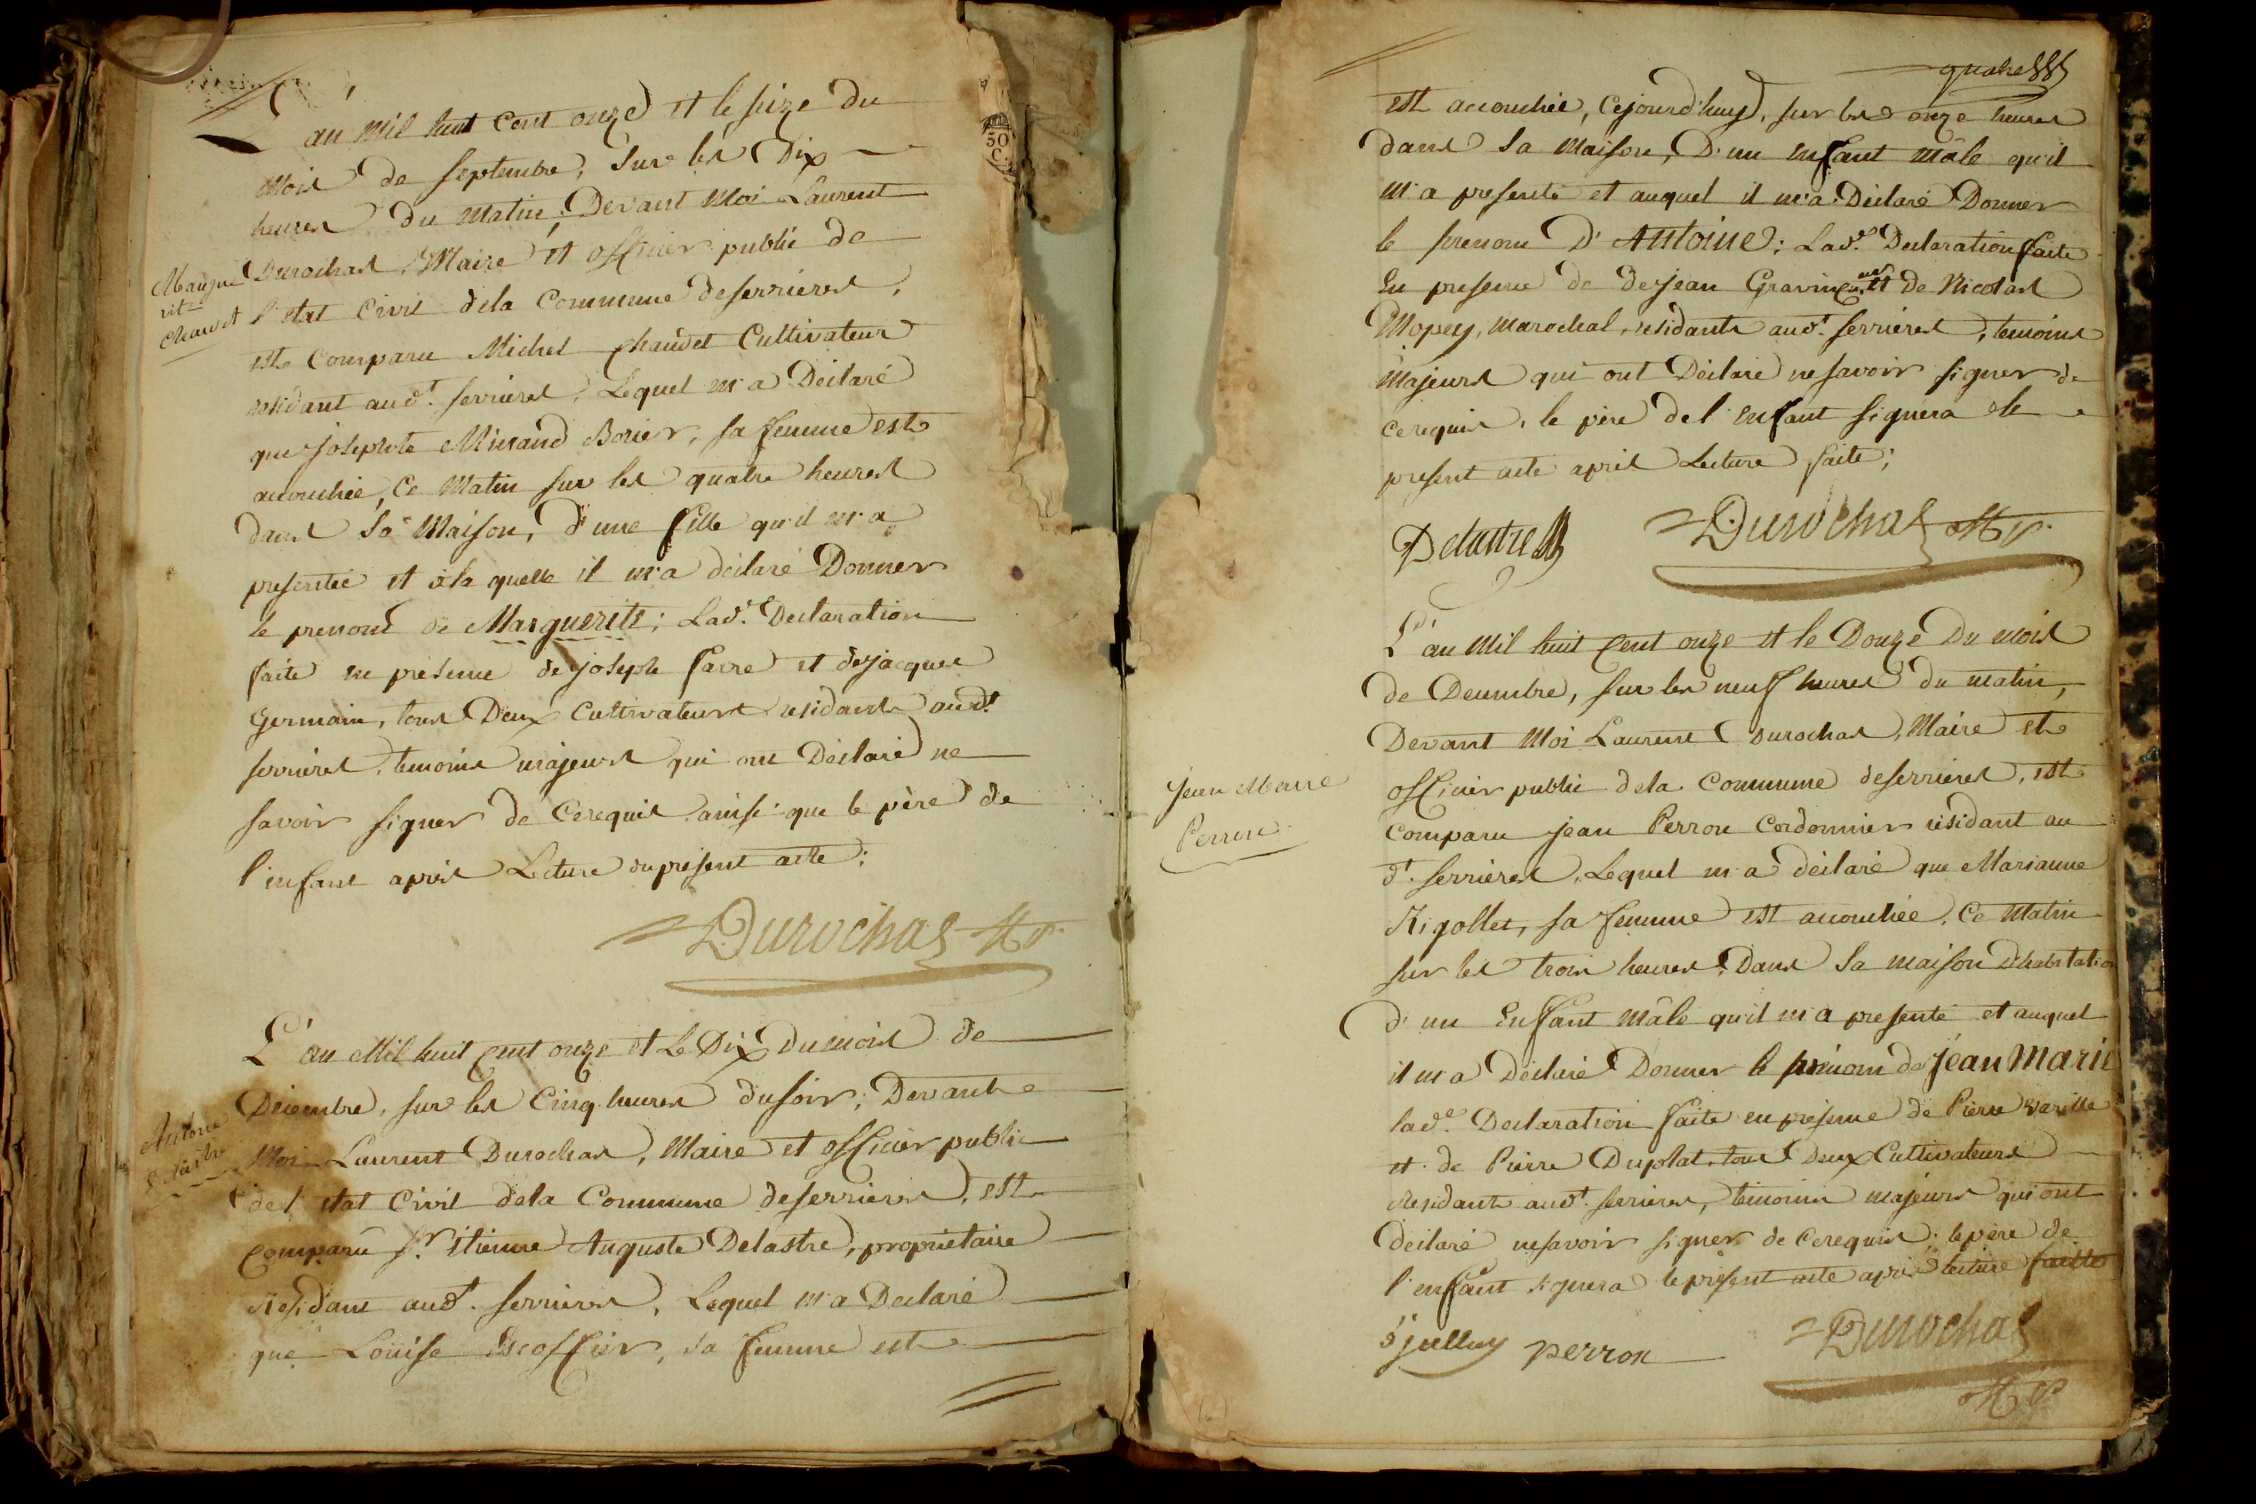 L'an mil huit cent onze et le seize du
mois de septembre, sur les Dix
heures du matin, Devant Moi Laurent
Durochas, Maire et officier public de
l'etat Civil dela Commune deserrières,
est Comparu Michel chaudet Cultivateur
residant aud.t serrières, Lequel m'a Déclaré
que Josephte Minand Borier, sa femme est
accouchée, Ce matin sur les quatre heures
dans sa Maison, d'une fille qu'il m'a
presentée et à la quelle il m'a déclaré Donner
le prenom de Marguerite; Lad.e Declaration
faite en présence de joseph favre et dejacques
Germain, tous Deux Cultivateurs residants aud.t
serrières, temoins majeurs qui ont Déclaré ne
savoir signer de Cerequis ainsi que le père de
l'enfant après Lecture du présent acte;
Durochas
L'an Mil huit cent onze et Le Dix du mois de
Décembre, sur les Cinq heures du soir; Devant
Moi Laurent Durochas, Maire et officier public
de l'etat Civil dela Commune deserrières, est
Comparu S.r Etienne Auguste Delastre, propriétaire
Residant aud.t serrières, Lequel m'a Declaré
que Louise Escoffier, sa femme est
chaudet
Antoine
est accouchée, Cejourd'huy, sur les onze heures
dans sa Maison, D'un enfant mâle qu'il
m'a presenté et auquel il m'a Déclaré Donner
le prenom D'Antoine; Lad.e Declaration faite
En presence de dejean et De Nicolas
Mopey, marechal, residants aud.t serrières, temoins
Majeurs qui ont Déclaré ne savoir signer de
cerequis, le père del'enfant signera le
present acte après Lecture faite;
Delastre Durochas
L'an Mil huit Cent onze et le Douze Du mois
de Decembre, sur les neuf heures du matin,
Devant Moi Laurent Durochas, Maire et
officier public dela Commune deserrières, est
Comparu jean Perron Cordonnier residant au
d.t serrières, Lequel m'a déclaré que Marianne
Rigollet, sa femme est accouchée, Ce Matin
sur les trois heures, Dans sa maison D'habitation
d'un Enfant Mâle qu'il m'a presenté et auquel
il m'a Déclaré Donner le prénom de jean Marie
lad.e Declaration faite en presence de Pierre
et de Pierre Dujolat, tous Deux Cultivateurs
Residants aud.t serrières, témoins majeurs qui ont
déclaré nesavoir signer de Cerequis; le père de
l'enfant signera le présent acte après lecture faitte
perron Durochas
jean Marie
Perron